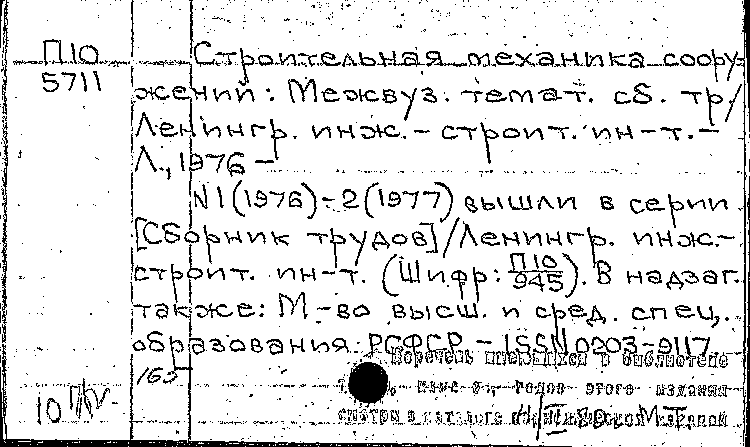 П10
5711
Строительная механика соору-
жений: Межвуз. темат. сб. тр./
Ленингр. инж.-строит. ин-т.-
Л., 1976 -
N1(1976)-2(1977) вышли в серии
[Сборник трудов]/Ленингр. инж.-
строит. ин-т. (Шифр: П10/945). В надзаг.
также: М-во высш. и сред. спец.
образования РСФСР. - ISSN 0203-9117
Перечень имеющихся в библиотеке
годов этого издания
смотри в каталоге
165
10